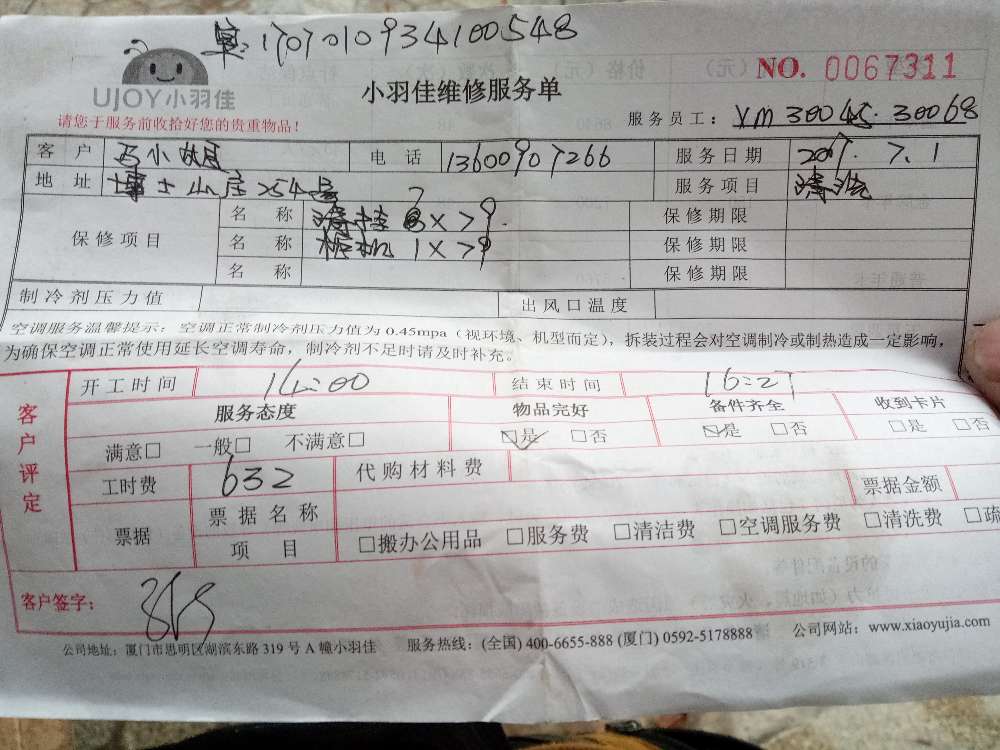 单:1707010934100548
UJOY小羽佳
小羽佳维修服务单
NO. 0067311
请您于服务前收拾好您的贵重物品!
服务员工:
客户 电话 13600907266 服务日期 7.1
地址 山庄254号 服务项目 清洗
保修项目 名称 清挂 X79 保修期限
名称 柜机 1X79 保修期限
名称 保修期限
制冷剂压力值 出风口温度
空调服务温馨提示:空调正常制冷剂压力值为 0.45mpa(视环境、机型而定),拆装过程会对空调制冷或制热造成一定影响,
为确保空调正常使用延长空调寿命,制冷剂不足时请及时补充。
客户评定
开工时间 14:00 结束时间 16:27
服务态度 物品完好 备件齐全 收到卡片
满意□ 一般□ 不满意□ □是 □否 □是 □否 □是 □否
工时费 632 代购材料费
票据 票据名称 票据金额
项目 □搬办公用品 □服务费 □清洁费 □空调服务费 □清洗费 □疏
客户签字:
公司地址:厦门市思明区湖滨东路 319 号 A 幢小羽佳 服务热线:(全国) 400-6655-888 (厦门) 0592-5178888 公司网站:www.xiaoyujia.com